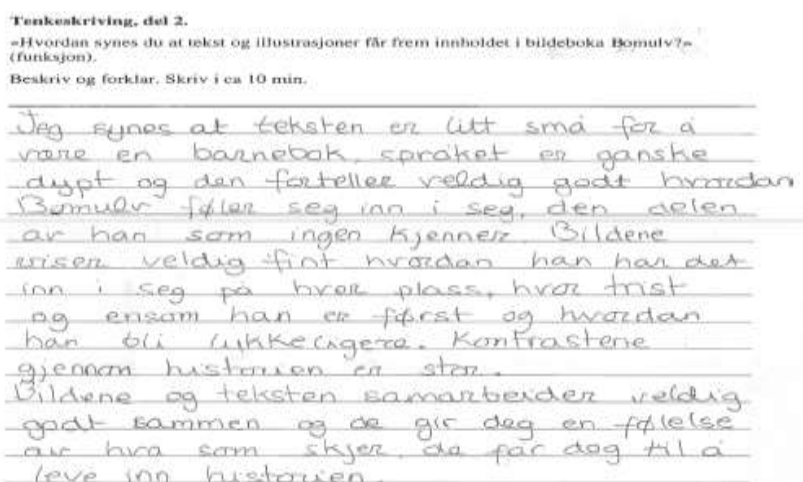 Tenkeskriving, del 2.
«Hvordan synes du at tekst og illustrasjoner får frem innholdet i bildeboka Bomulv?»
(funksjon).
Beskriv og forklar. Skriv i ca 10 min.
Jeg synes at teksten er litt små for å
være en barnebok, språket er ganske
dypt og den forteller veldig godt hvordan
Bomulv føler seg inn i seg, den delen
av han som ingen kjenner. Bildene
viser veldig fint hvordan han har det
inn i seg på hver plass, hvor trist
og ensom han er først og hvordan
han bli lykkeligere. Kontrastene
gjennom historien er stor.
Bildene og teksten samarbeider veldig
godt sammen og de gir deg en følelse
av hva som skjer, de får deg til å
leve inn historien.